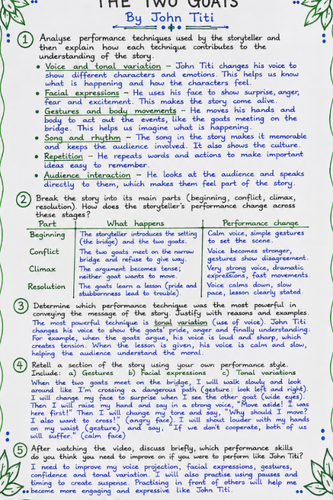 THE TWO GOATS
By John Titi
1 Analyse performance techniques used by the storyteller and
then explain how each technique contributes to the
understanding of the story.
• Voice and tonal variation – John Titi changes his voice to
show different characters and emotions. This helps us know
what is happening and how the characters feel.
• Facial expressions – He uses his face to show surprise, anger,
fear and excitement. This makes the story come alive.
• Gestures and body movements – He moves his hands and
body to act out the events, like the goats meeting on the
bridge. This helps us imagine what is happening.
• Song and rhythm – The song in the story makes it memorable
and keeps the audience involved. It also shows the culture.
• Repetition – He repeats words and actions to make important
ideas easy to remember.
• Audience interaction – He looks at the audience and speaks
directly to them, which makes them feel part of the story.
2 Break the story into its main parts (beginning, conflict, climax,
resolution). How does the storyteller's performance change across
these stages?
Part What happens Performance change
Beginning The storyteller introduces the setting (the bridge) and the two goats. Calm voice, simple gestures to set the scene.
Conflict The two goats meet on the narrow bridge and refuse to give way. Voice becomes stronger, gestures show disagreement.
Climax The argument becomes tense; neither goat wants to move. Very strong voice, dramatic expressions, fast movements.
Resolution The goats learn a lesson (pride and stubbornness lead to trouble) Voice calms down, slow pace, lesson clearly stated.
3 Determine which performance technique was the most powerful in
conveying the message of the story. Justify with reasons and examples.
The most powerful technique is tonal variation (use of voice). John Titi
changes his voice to show the goats' pride, anger and finally understanding.
For example, when the goats argue, his voice is loud and sharp, which
creates tension. When the lesson is given, his voice is calm and slow,
helping the audience understand the moral.
4 Retell a section of the story using your own performance style.
Include: a) Gestures a) Facial expressions c) Tonal variations
When the two goats meet on the bridge, I will walk slowly and look
around like I'm crossing a dangerous path (gesture: look left and right).
I will change my face to surprise when I see the other goat (wide eyes).
Then I will raise my hand and say in a strong voice, "Move aside! I was
here first!" Then I will change my tone and say, "Why should I move?
I also want to cross!" (angry face). I will shout louder with my hands
on my waist (gesture) and say, "If we don't cooperate, both of us
will suffer." (calm face)
5 After watching the video, discuss briefly, which performance skills
do you think you need to improve on if you were to perform like John Titi?
I need to improve my voice projection, facial expressions, gestures,
confidence and tonal variation. I will also practise using pauses and
timing to create suspense. Practising in front of others will help me
become more engaging and expressive like John Titi.